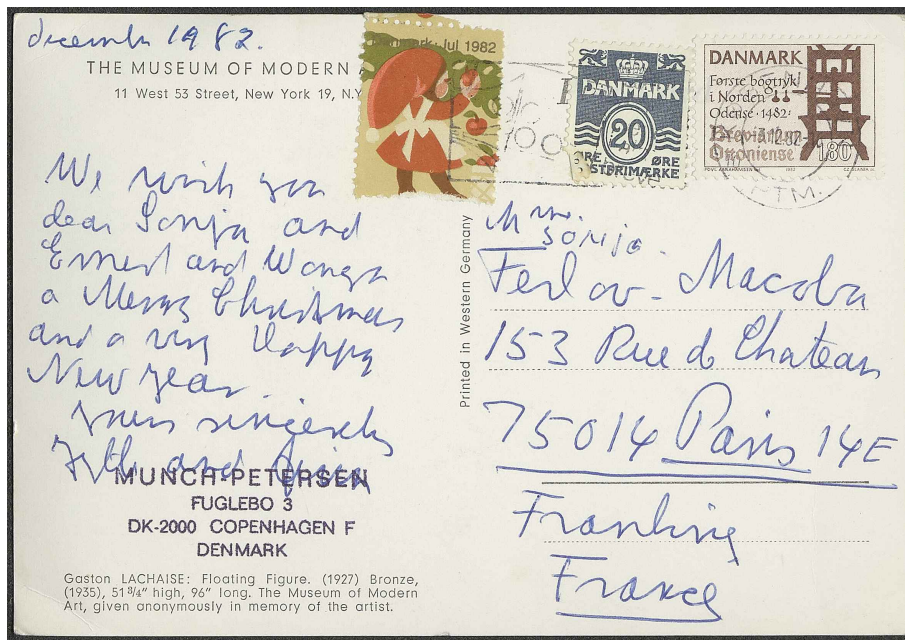 december 1982.
THE MUSEUM OF MODERN
11 West 53 Street, New York 19, N.Y
Jul 1982
DANMARK
20
ØRE
DANMARK
Første bogtryk
i Norden
Odense · 1482
Breviarium
Ottoniense
180
We wish you
dear Sonja and
Ernest and Wonga
a Merry Christmas
and a very Happy
New Year
Yours sincerely
and
MUNCH-PETERSEN
FUGLEBO 3
DK-2000 COPENHAGEN F
DENMARK
Gaston LACHAISE: Floating Figure. (1927) Bronze,
(1935), 51 3/4" high, 96" long. The Museum of Modern
Art, given anonymously in memory of the artist.
Printed in Western Germany
Mme.
Sonja
Ferlov-Macoba
153 Rue d Chateau
75014 Paris 14E
France